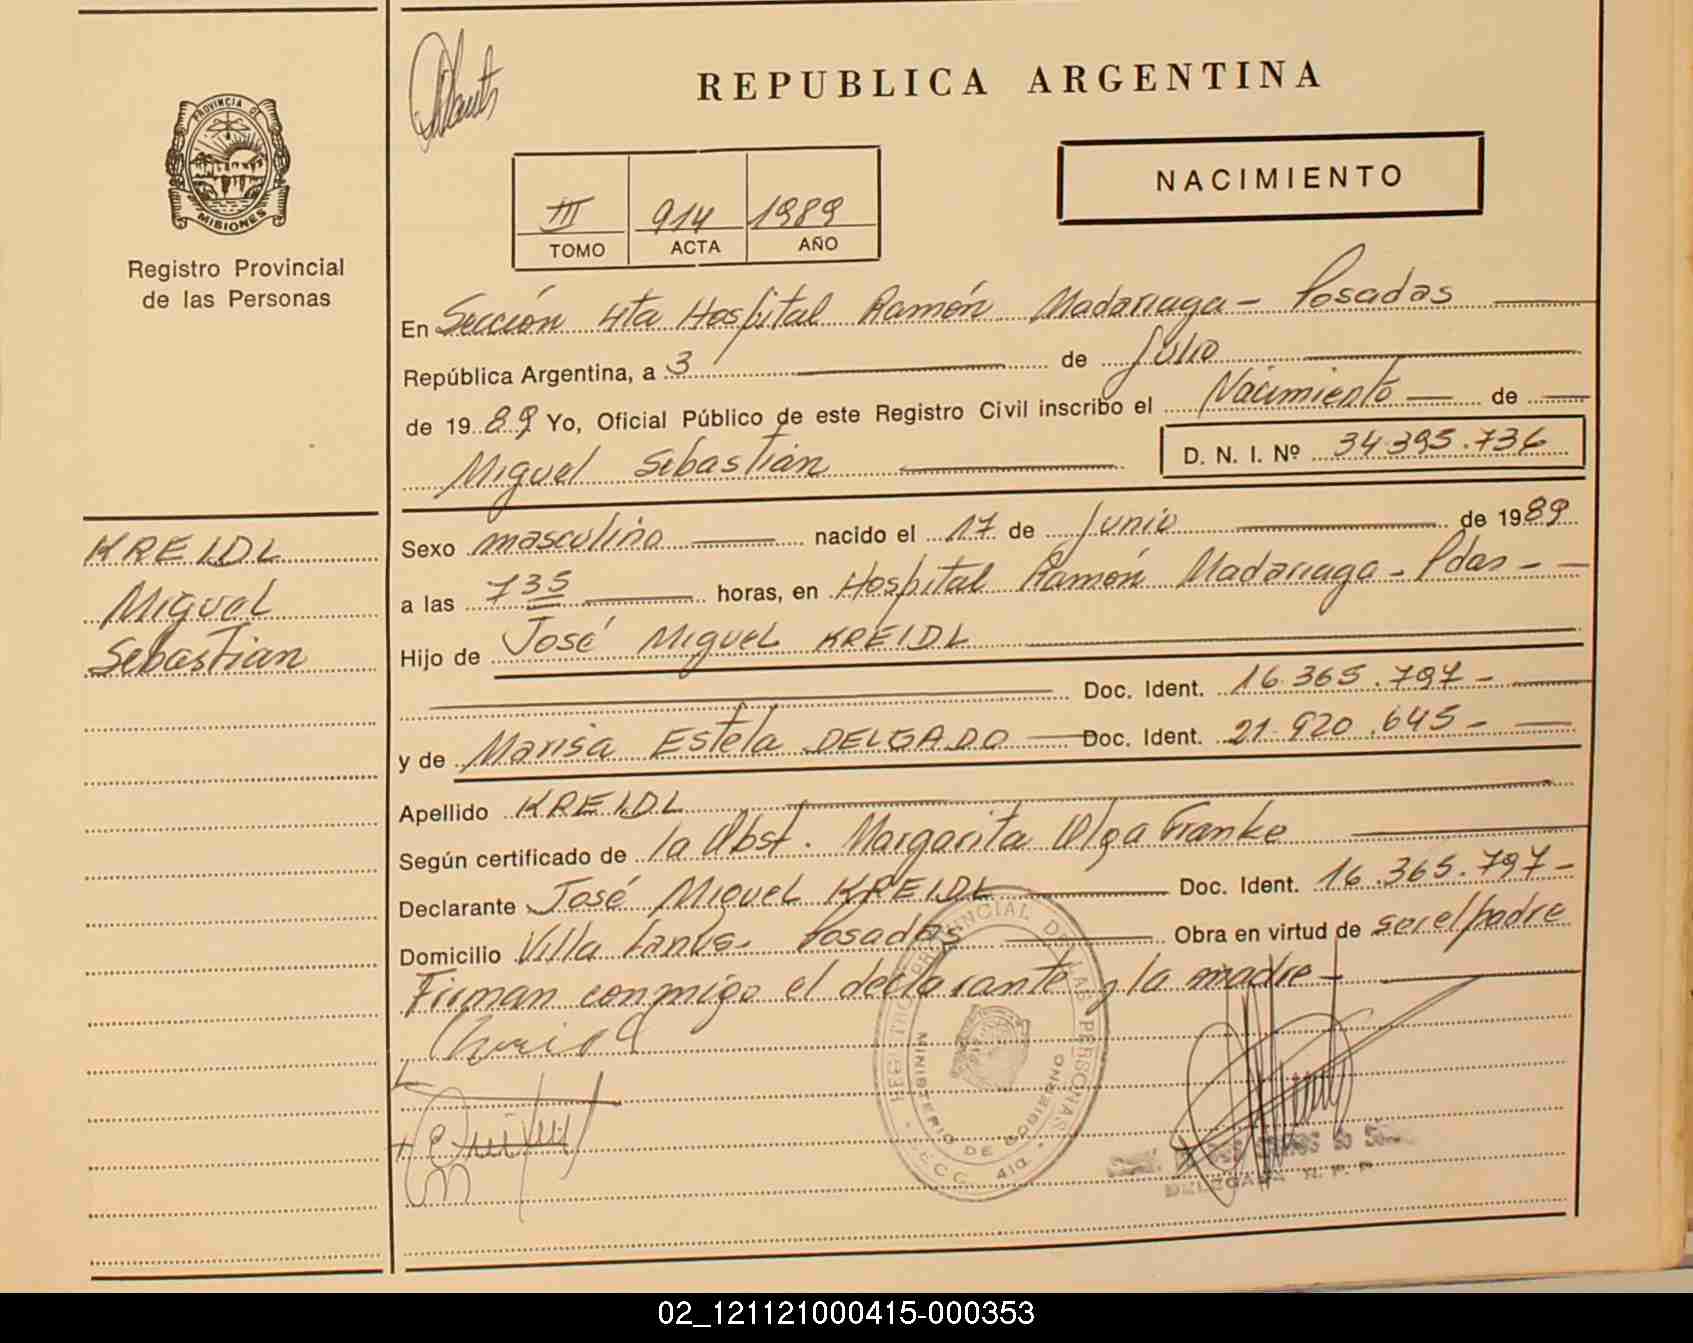 REPUBLICA ARGENTINA
PROVINCIA DE
MISIONES
Registro Provincial
de las Personas
III 914 1989
TOMO ACTA AÑO
NACIMIENTO
En Sección 4ta Hospital Ramón Madariaga - Posadas
República Argentina, a 3 de Julio
de 1989 Yo, Oficial Público de este Registro Civil inscribo el Nacimiento de
Miguel Sebastián D. N. I. Nº 34.395.736
KREIDL
Miguel
Sebastián
Sexo masculino nacido el 17 de Junio de 1989
a las 7 35 horas, en Hospital Ramón Madariaga - Pdas -
Hijo de José Miguel KREIDL
Doc. Ident. 16.365.797 -
y de Marisa Estela DELGADO Doc. Ident. 21.920.645 -
Apellido KREIDL
Según certificado de la Obst. Margarita Olga Franke
Declarante José Miguel KREIDL Doc. Ident. 16.365.797 -
Domicilio Villa Lanús - Posadas Obra en virtud de ser el padre
Firman conmigo el declarante y la madre -
REGISTRO PROVINCIAL DE LAS PERSONAS
MINISTERIO DE GOBIERNO
DELEGADA R. P. P.
02_121121000415-000353